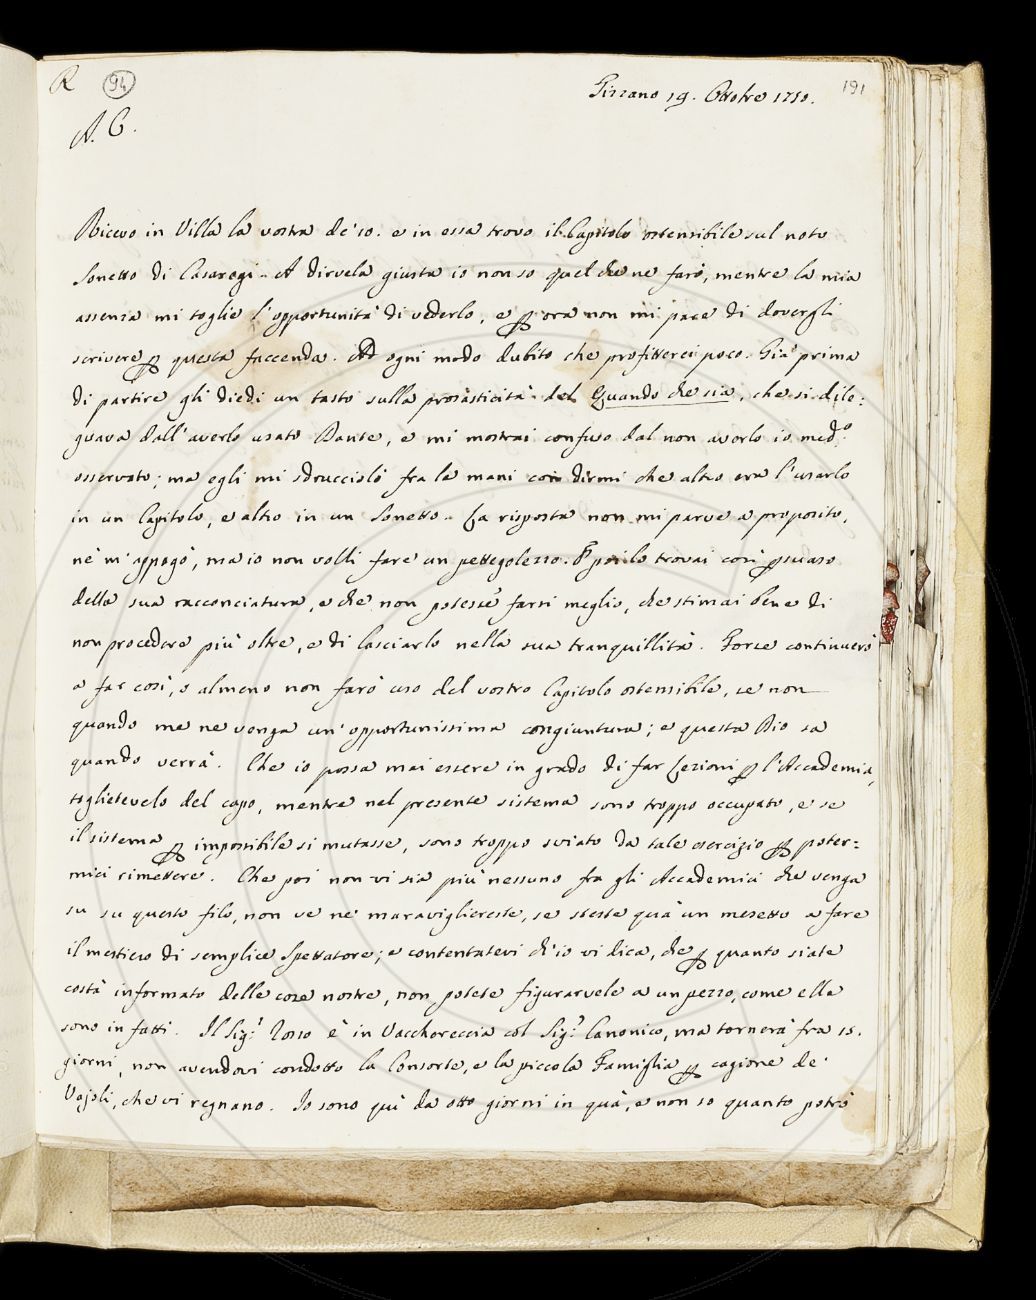 R 94 191
Gizzano 19. Ottobre 1750.
A. C.
Ricevo in Villa la vostra de' 10. e in essa trovo il Capitolo ostensibile sul noto
Sonetto di Casaregi. A dirvela giusta io non so quel che ne farò, mentre la mia
assenza mi toglie l'opportunità di vederlo, e p ora non mi pare di dovergli
scrivere p questa faccenda. Ad ogni modo dubito che profitterei poco. Già prima
di partire gli diedi un tasto sulla prosasticità del Quando che sia, che si dile:
guava dall'averlo usato Dante, e mi mostrai confuso dal non averlo io med.º
osservato; ma egli mi sdrucciolò fra le mani con dirmi che altro era l'usarlo
in un Capitolo, e altro in un Sonetto. La risposta non mi parve a proposito,
nè m'appagò, ma io non volli fare un pettegolezzo. E poi lo trovai così psuaso
della sua racconciatura, e che non potesse farsi meglio, che stimai bene di
non procedere più oltre, e di lasciarlo nella sua tranquillità. Forse continuerò
a far così, o almeno non farò uso del vostro Capitolo ostensibile, se non
quando me ne venga un'opportunissima congiuntura; e questa Dio sa
quando verrà. Che io possa mai essere in grado di far Lezioni p l'Accademia,
toglietevelo del capo, mentre nel presente sistema sono troppo occupato, e se
il sistema p impossibile si mutasse, sono troppo sviato da tale esercizio p poter:
mici rimettere. Che poi non vi sia più nessuno fra gli Accademici che venga
su su questo filo, non ve ne maravigliereste, se steste quà un mesetto a fare
il mestiero di semplice Spettatore; e contentatevi ch'io vi dica, che p quanto siate
costà informato delle cose nostre, non potete figurarvele a un pezzo, come elle
sono in fatti. Il Sig.r Rosso è in Vacchereccia col Sig.r Canonico, ma tornerà fra 15.
giorni, non avendovi condotto la Consorte, e la piccola Famiglia p cagione de'
Vajoli, che vi regnano. Io sono quì da otto giorni in quà, e non so quanto potrò